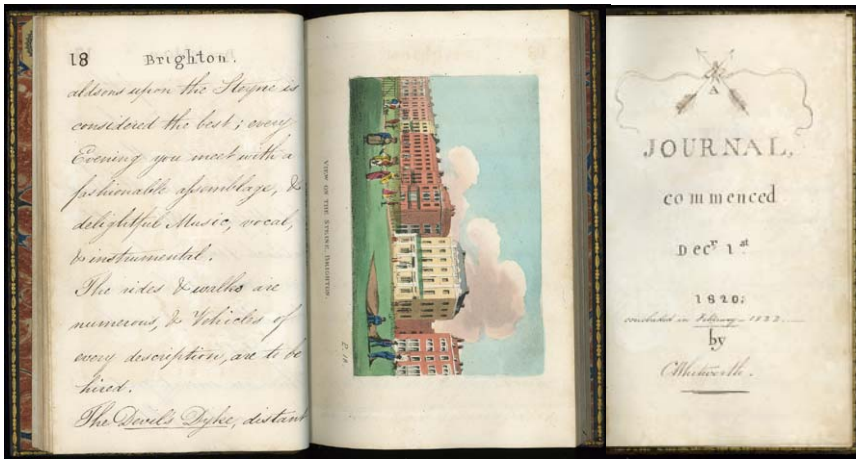 18 Brighton.
aldsons upon the Steyne is
considered the best; every
Evening you meet with a
fashionable assemblage, &
delightful Music, vocal,
& instrumental.
The rides & walks are
numerous, & Vehicles of
every description, are to be
hired.
The Devil's Dyke, distant
VIEW ON THE STEINE, BRIGHTON.
P. 18
A
JOURNAL,
commenced
Decr 1st
1820;
concluded in February 1822
by
CWhitworth.